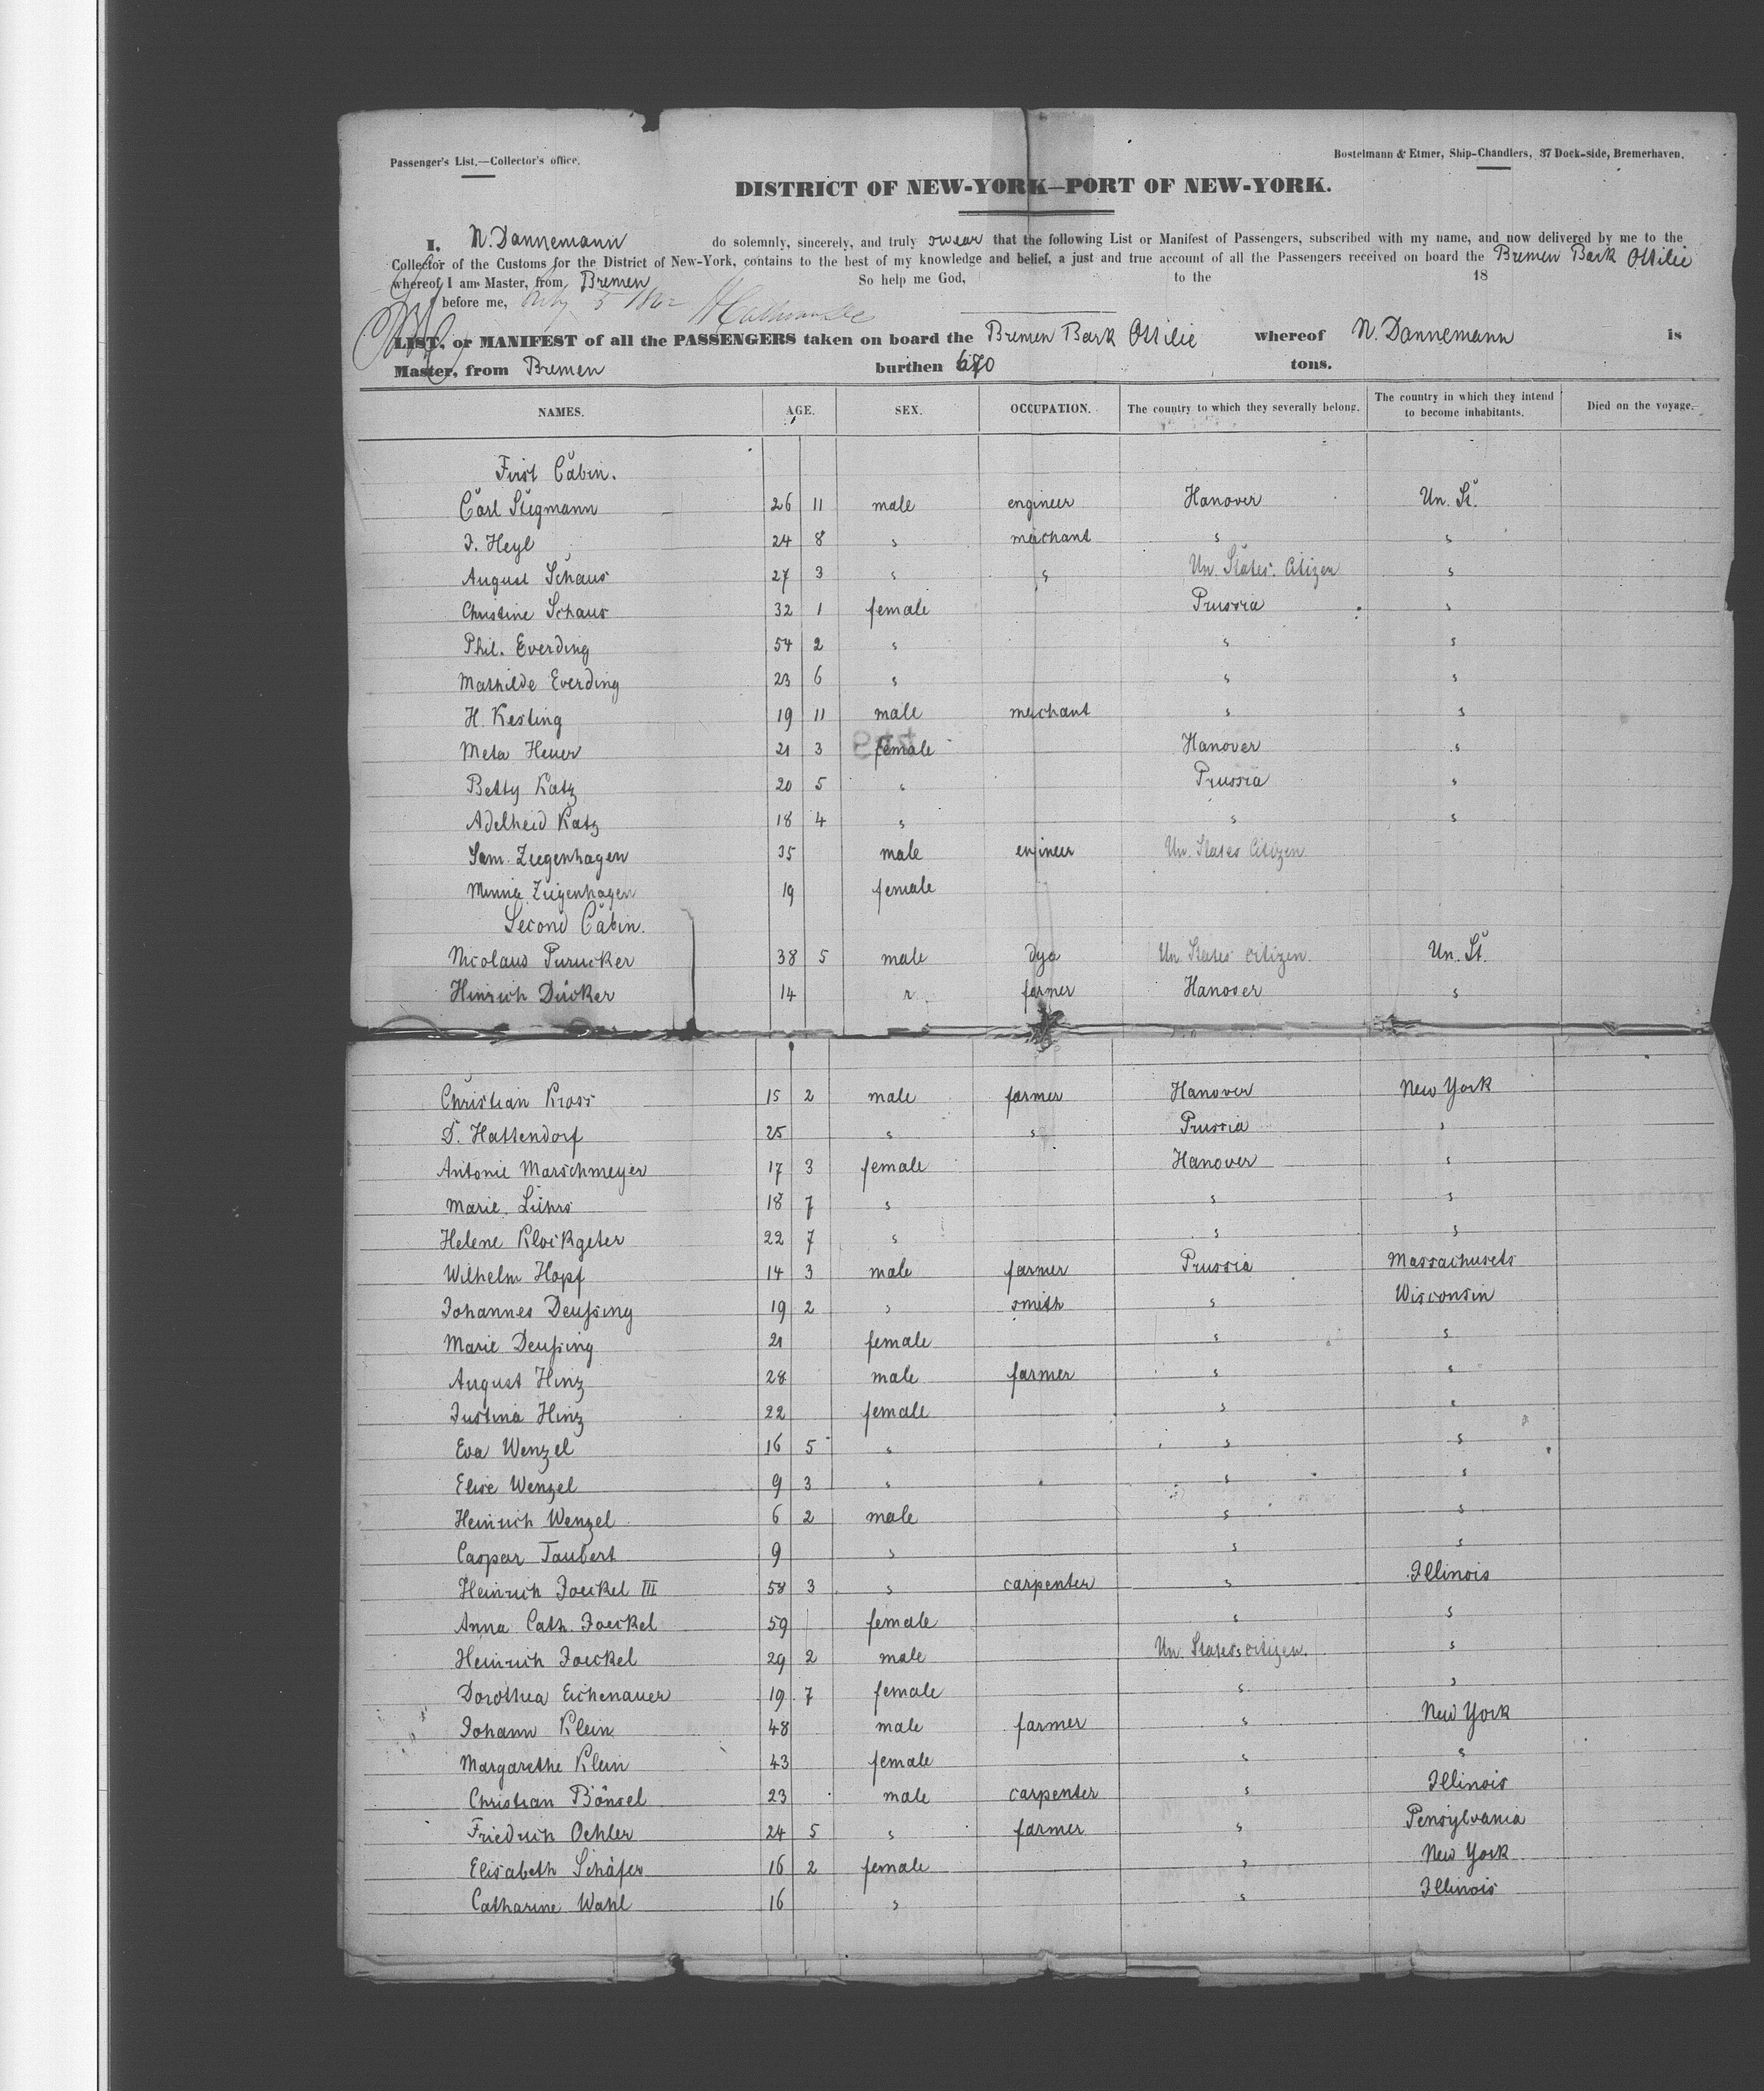 Passenger's List.—Collector's office.
Bostelmann & Etmer, Ship-Chandlers, 37 Dock-side, Bremerhaven.
DISTRICT OF NEW-YORK—PORT OF NEW-YORK.
I, N. Dannemann do solemnly, sincerely, and truly swear that the following List or Manifest of Passengers, subscribed with my name, and now delivered by me to the
Collector of the Customs for the District of New-York, contains to the best of my knowledge and belief, a just and true account of all the Passengers received on board the Bremen Bark Ottilie
whereof I am Master, from Bremen So help me God, to the 18
before me, July 5 1862
LIST, or MANIFEST of all the PASSENGERS taken on board the Bremen Bark Ottilie whereof N. Dannemann is
Master, from Bremen burthen 670 tons.
NAMES. AGE. SEX. OCCUPATION. The country to which they severally belong. The country in which they intend to become inhabitants. Died on the voyage.
First Cabin.
Carl Stegmann 26 11 male engineer Hanover Un. St.
J. Heyl 24 8 s merchant s s
August Schaus 27 3 s s Un. States. Citizen s
Christine Schaus 32 1 female Prussia s
Phil. Everding 54 2 s s s
Mathilde Everding 23 6 s s s
H. Kesting 19 11 male merchant s s
Meta Heuer 21 3 female Hanover s
Betty Katz 20 5 s Prussia s
Adelheid Katz 18 4 s s s
Sam. Ziegenhagen 35 male engineer Un. States Citizen
Minnie Ziegenhagen 19 female
Second Cabin.
Nicolaus Purucker 38 5 male dyer Un States citizen. Un. St.
Hinrich Dücker 14 s farmer Hanover s
Christian Kross 15 2 male farmer Hanover New York
D. Hattendorf 25 s s Prussia s
Antonie Marschmeyer 17 3 female Hanover s
Marie Lührs 18 7 s s s
Helene Klockgeter 22 7 s s s
Wilhelm Hopf 14 3 male farmer Prussia Massachusets
Johannes Deußing 19 2 s smith s Wisconsin
Marie Deußing 21 female s s
August Hinz 28 male farmer s s
Justina Hinz 22 female s s
Eva Wenzel 16 5 s s s
Elise Wenzel 9 3 s s s
Heinrich Wenzel 6 2 male s s
Caspar Taubert 9 s s s
Heinrich Joeckel III 58 3 s carpenter s Illinois
Anna Cath. Joeckel 59 female s s
Heinrich Joeckel 29 2 male Un. States citizen. s
Dorothea Eichenauer 19 7 female s s
Johann Klein 48 male farmer s New York
Margarethe Klein 43 female s s
Christian Bönsel 23 male carpenter s Illinois
Friedrich Oehler 24 5 s farmer s Pensylvania
Elisabeth Schäfer 16 2 female s New York
Catharine Wahl 16 s s Illinois